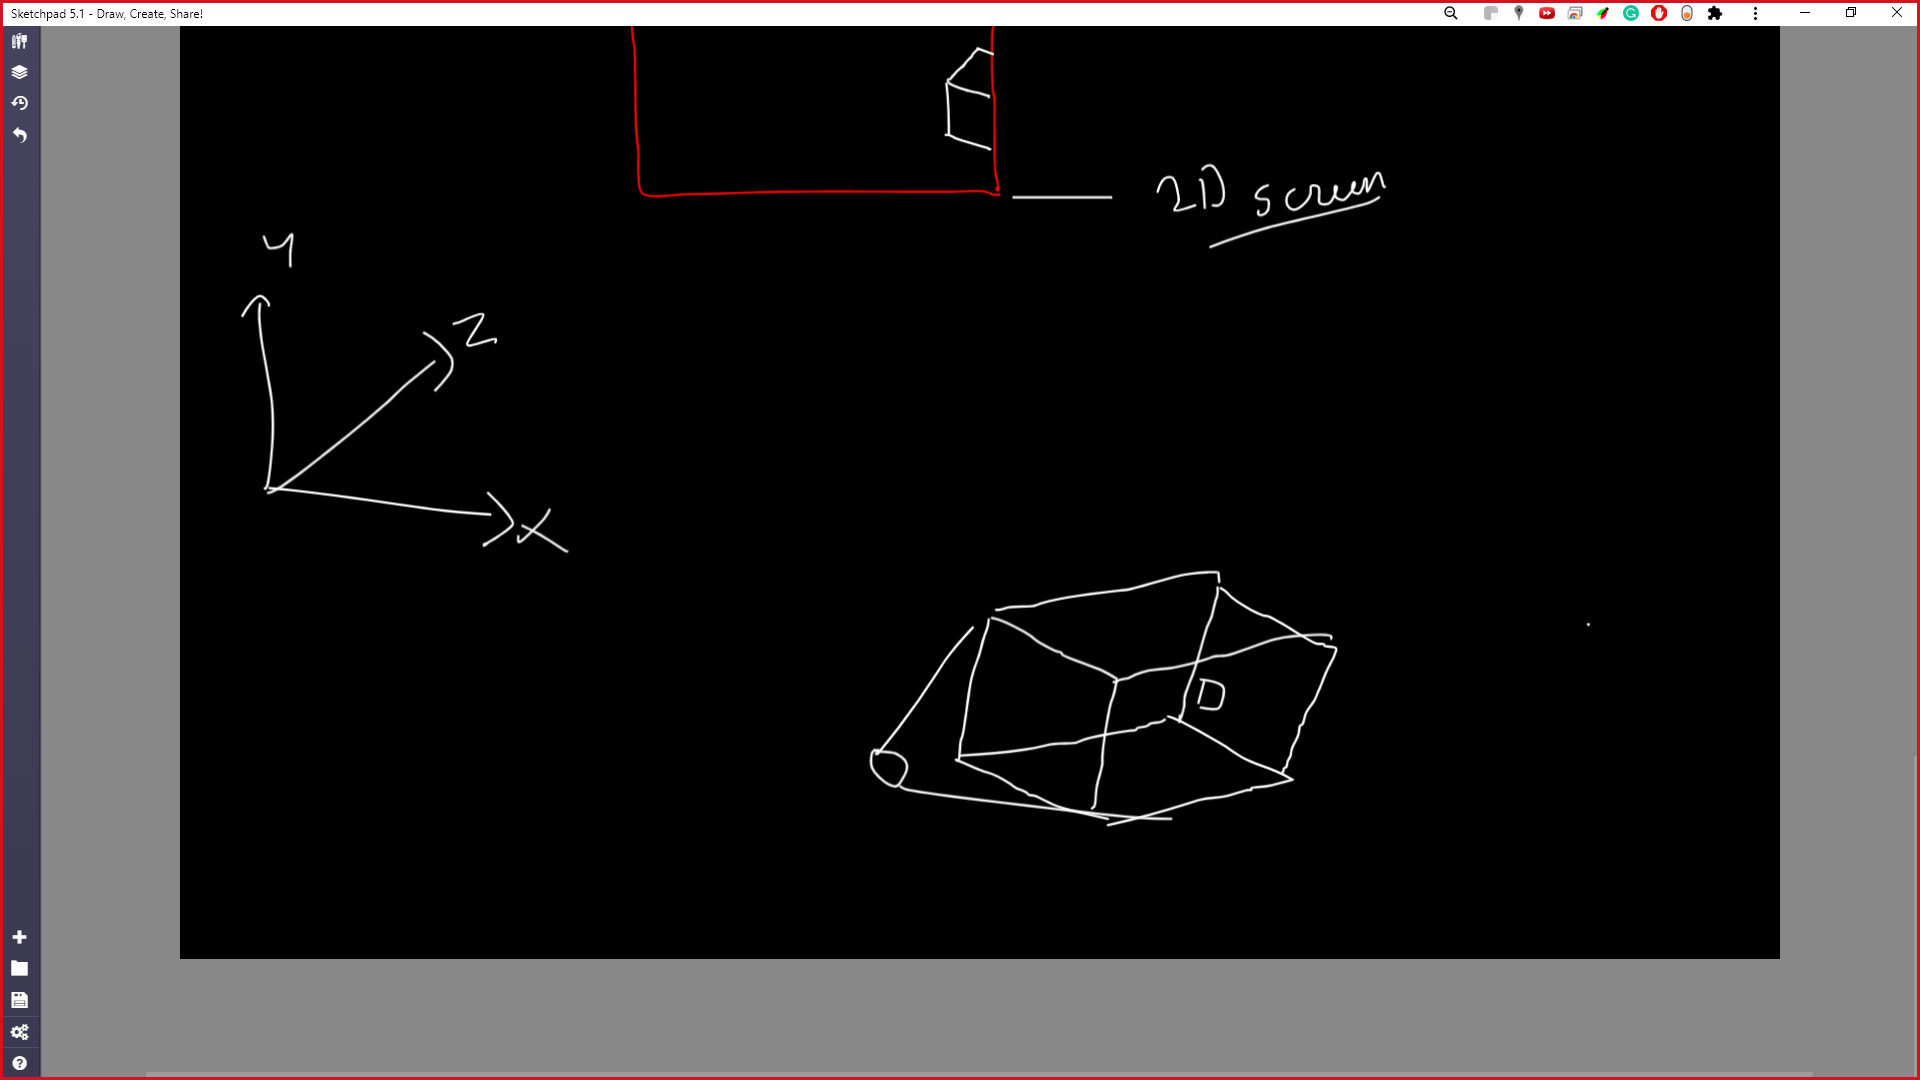 Sketchpad 5.1 - Draw, Create, Share!
2D screen
Y
Z
X
D